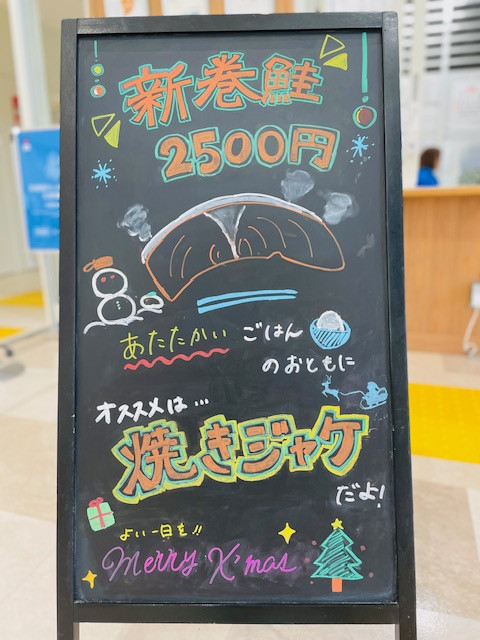 新巻鮭
2500円
あたたかい ごはん
のおともに
オススメは…
焼きジャケ
だよ!
よい一日を!!
Merry X'mas